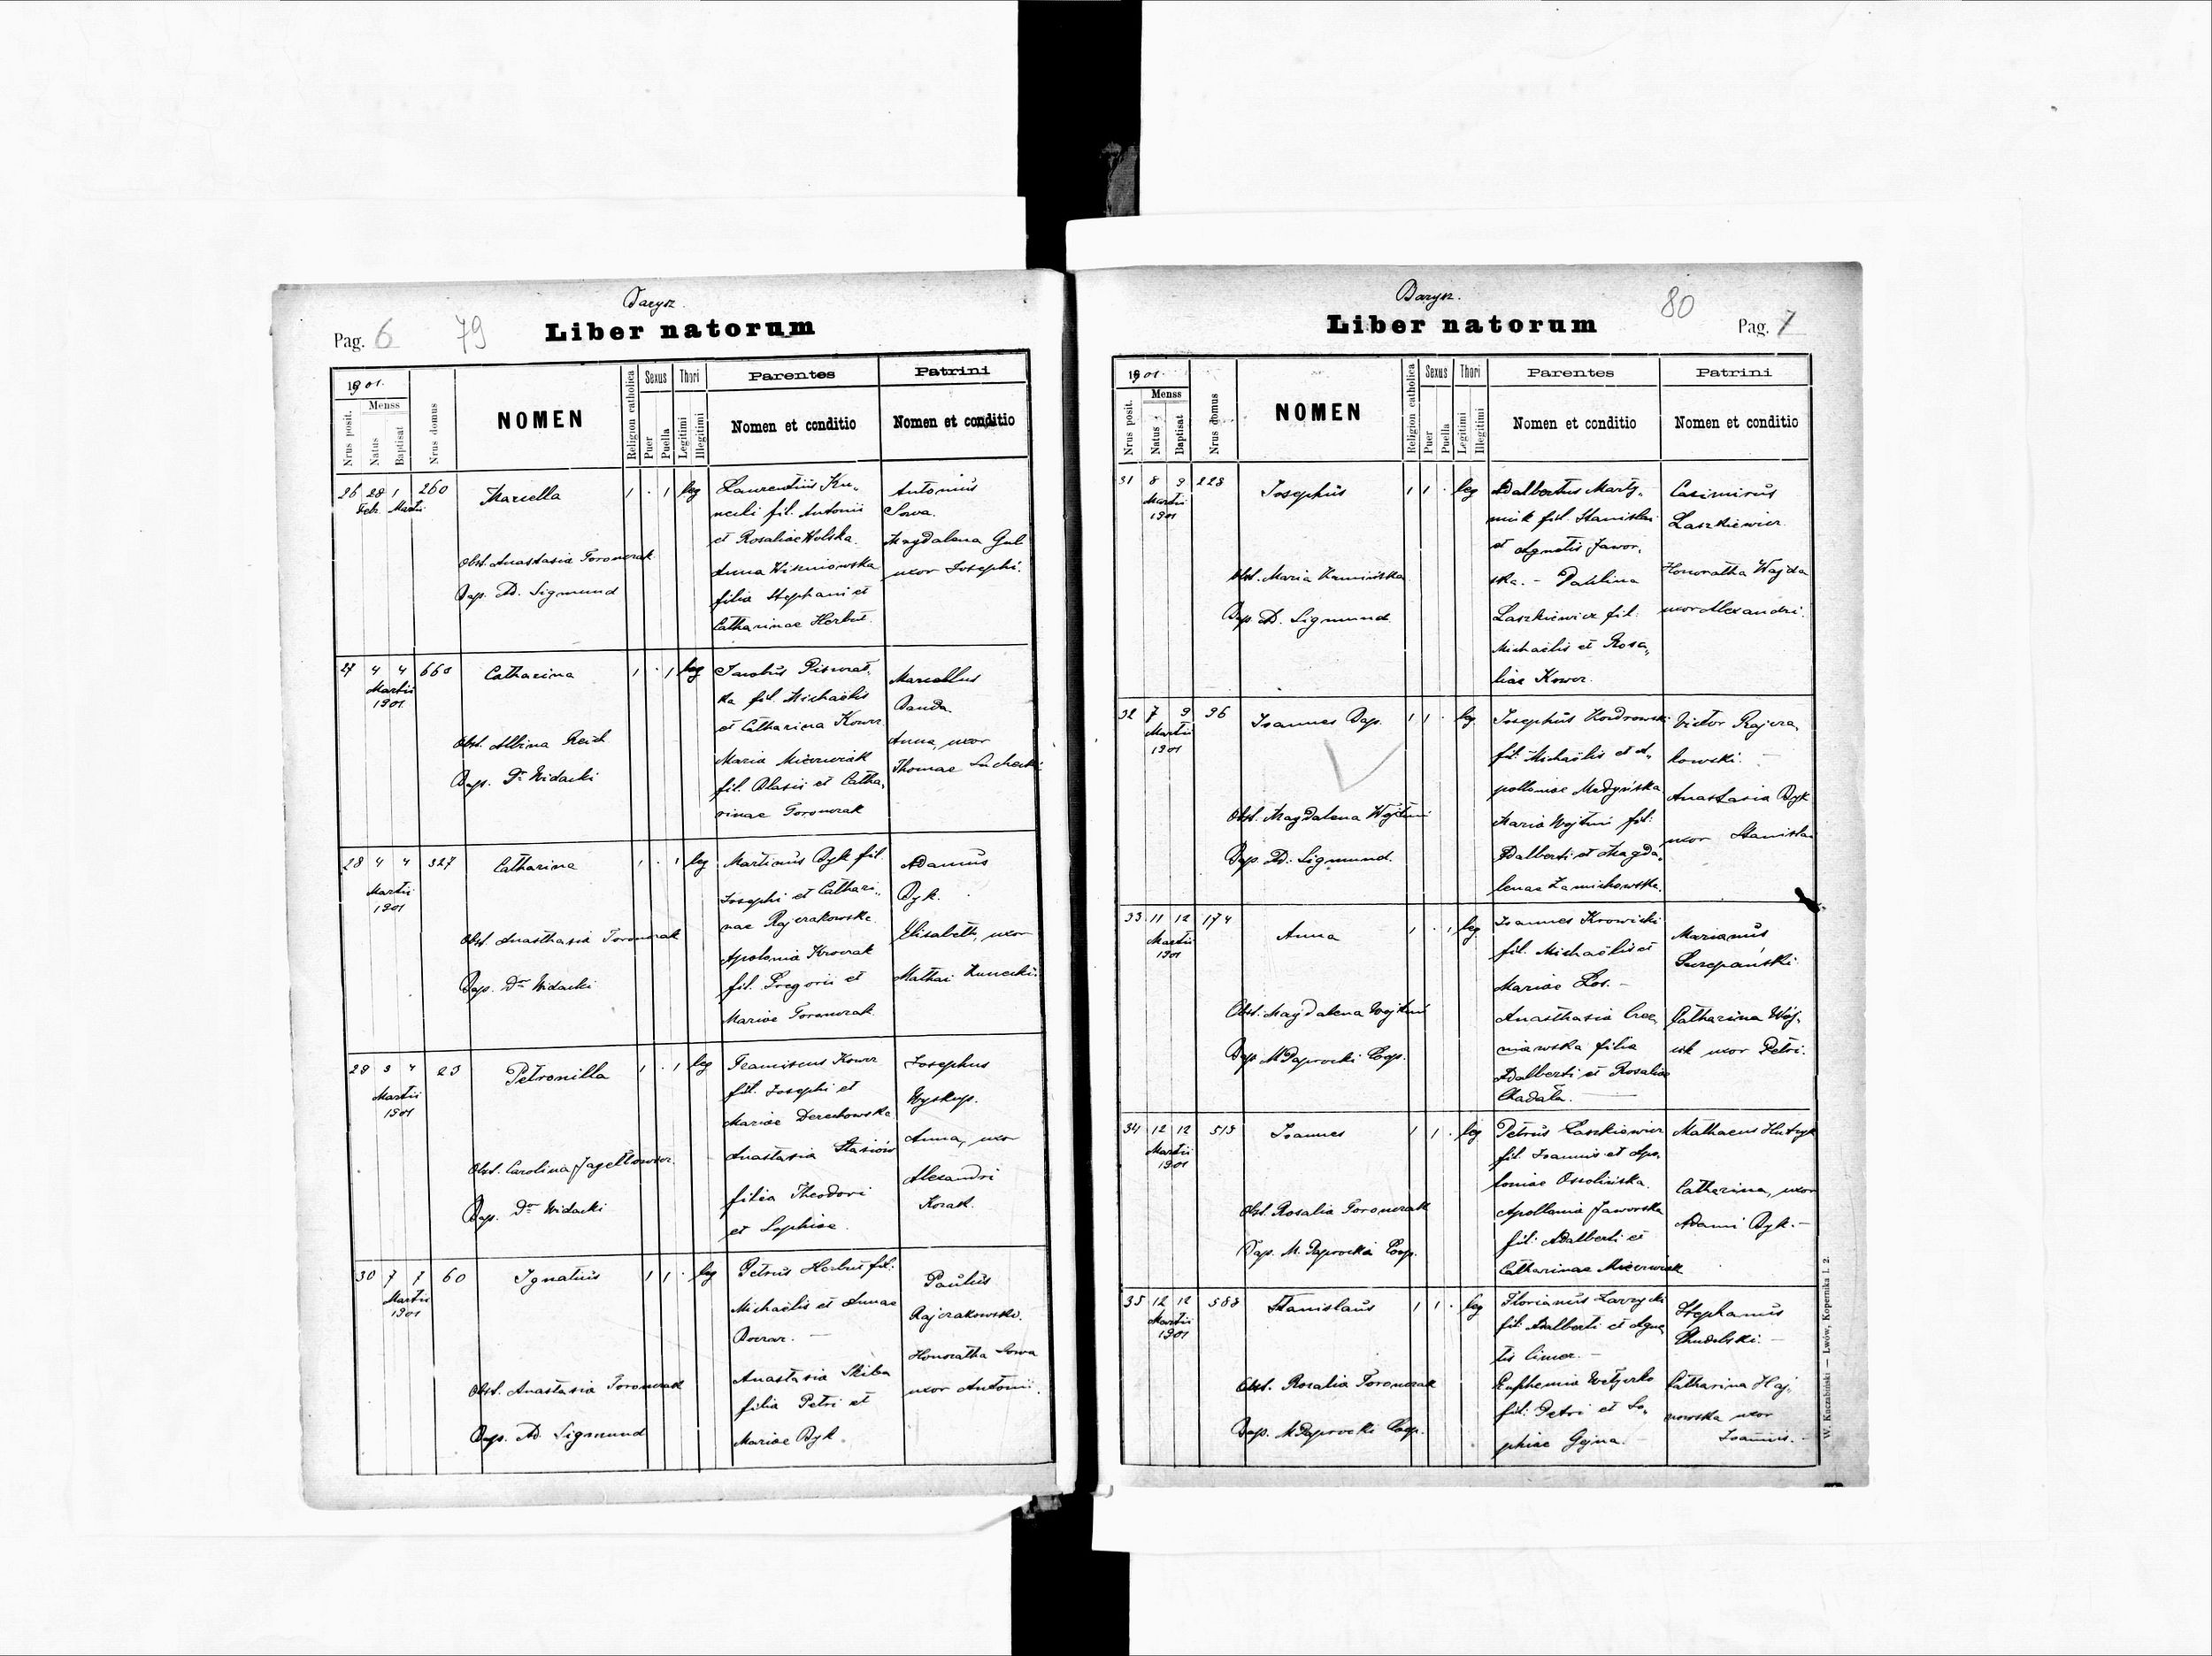 Barysz.
Pag. 6
79
Liber natorum
1901.
Nrus posit.
Menss
Natus
Baptisat
Nrus domus
NOMEN
Religion catholica
Sexus
Puer
Puella
Thori
Legitimi
Illegitimi
Parentes
Nomen et conditio
Patrini
Nomen et conditio
26 28 1 260 Marcella 1 . 1 leg
Feb. Martii
Obst. Anastasia Toronczak
Bap. Ad. Sigmund
Laurentius Ku-
necki fil. Antonii
et Rosaliae Wolska.
Anna Wiśniowska
filia Stephani et
Catharinae Herbut.
Antonius
Sowa.
Magdalena Gul
uxor Josephi.
27 4 4 660 Catharina 1 . 1 leg
Martii
1901.
Obst. Albina Reich
Bap. Dr Widacki
Jacobus
ka fil. Michaëlis
et Catharina Kowcz
Maria
fil. Blasii et Catha-
rinae Toronczak
Marcellus
Banda.
Anna, uxor
Thomae
28 4 4 327 Catharina 1 . 1 leg
Martii
1901
Obst. Anasthasia Toronczak
Bap. Dr Widacki
Martinus Byk fil.
Josephi et Cathari-
nae Rajczakowska.
Apolonia Krowiak
fil. Gregorii et
Mariae Toronczak
Adamus
Byk.
Elisabeth, uxor
Mathai Kunecki.
29 3 4 23 Petronilla 1 . 1 leg
Martii
1901
Obst. Carolina Jagełłowicz.
Bap. Dr Widacki
Franciscus Kowcz
fil. Josephi et
Mariae Derechowska
Anastasia Stasiów
filia Theodori
et Sophiae.
Josephus
Wyskup.
Anna, uxor
Alexandri
Kozak.
30 7 7 60 Ignatius 1 1 . leg
Martii
1901
Obst. Anastasia Toronczak
Bap. Ad. Sigmund
Petrus Herbut fil.
Michaëlis et Annae
Anastasia Skiba
filia Petri et
Mariae Byk.
Paulus
Rajczakowski.
Honoratha Sowa
uxor Antonii.
Barysz.
80
Liber natorum
Pag. 7
1901.
Nrus posit.
Menss
Natus
Baptisat
Nrus domus
NOMEN
Religion catholica
Sexus
Puer
Puella
Thori
Legitimi
Illegitimi
Parentes
Nomen et conditio
Patrini
Nomen et conditio
31 8 9 228 Josephus 1 1 . leg
Martii
1901
Obst. Maria Kamińska
Bap. Ad. Sigmund.
Adalbertus Marty-
niuk fil. Stanislai
et Agnetis Jawor-
ska. - Paulina
Laszkiewicz fil.
Michaëlis et Rosa-
liae Kowcz.
Casimirus
Laszkiewicz.
Honoratha Wajda
uxor Alexandri.
32 7 9 96 Joannes Bap. 1 1 . leg.
Martii
1901
Obst. Magdalena Wojtuń
Bap. Ad. Sigmund.
Josephus Kondrowski
fil. Michaëlis et A-
polloniae Medyńska
Maria Wojtuń fil.
Adalberti et Magda-
lenae
Victor Rajcza-
kowski.
Anastasia Byk
uxor Stanislai
33 11 12 174 Anna 1 . 1 leg.
Martii
1901
Obst. Magdalena Wojtuń
Bap. M. Paprocki Coop.
Joannes Krowicki
fil. Michaëlis et
Mariae Łoś. -
Anasthasia
filia
Adalberti et Rosaliae
Chadała.
Marianus
Szczepański.
Catharina Wój-
cik uxor Petri.
34 12 12 513 Joannes 1 1 . leg
Martii
1901
Obst. Rosalia Toronczak
Bap. M. Paprocki Coop.
Petrus Laszkiewicz
fil. Joannis et Apo-
loniae Ossolińska.
Apollonia Jaworska
fil. Adalberti et
Catharinae
Mathaeus
Catharina, uxor
Adami Byk. -
35 12 12 588 Stanislaus 1 1 . leg
Martii
1901
Obst. Rosalia Toronczak
Bap. M. Paprocki Coop.
Florianus
fil. Adalberti et Agne-
tis
Euphemia
fil. Petri et So-
phiae
Stephanus
Chudelski. -
Catharina Haj-
nowska uxor
Joannis. -
W. Kuczabiński — Lwów, Kopernika l. 2.